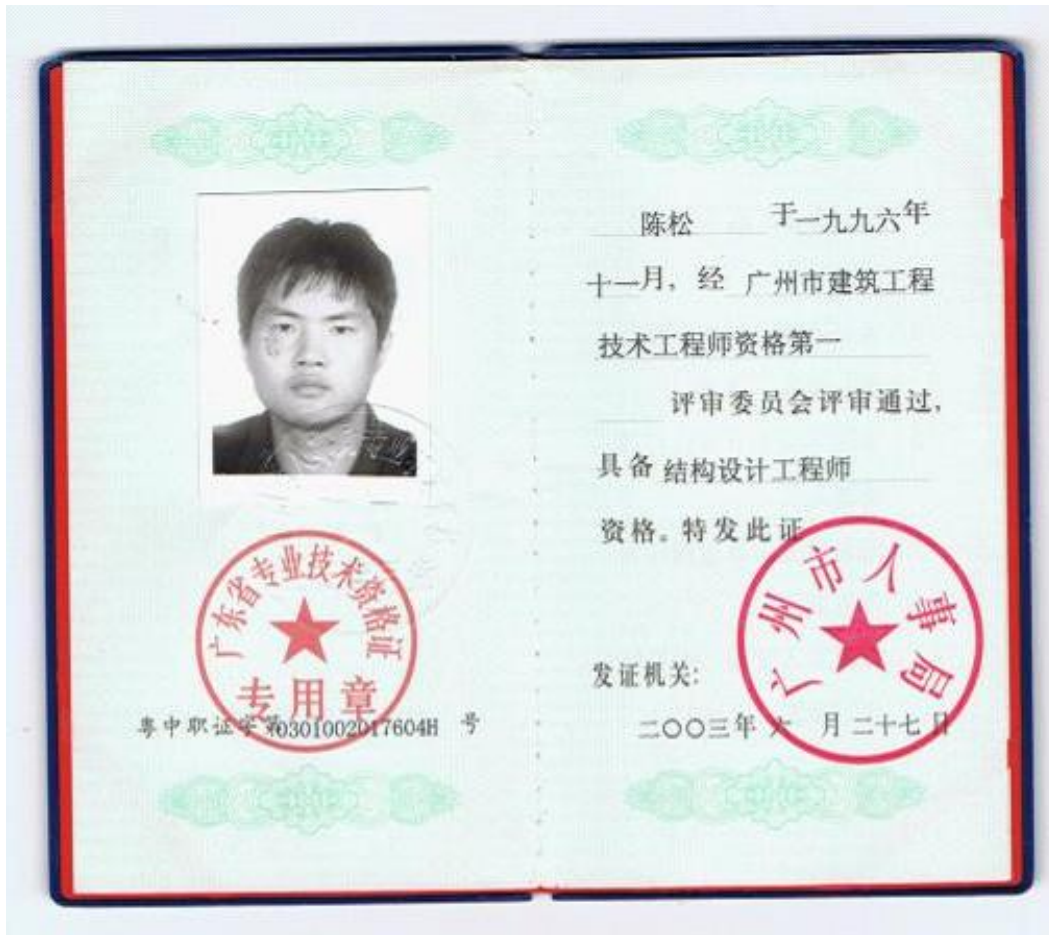 广东省专业技术资格证
专用章
粤中职证字第0301002017604H 号
陈松 于一九九六年
十一月，经 广州市建筑工程
技术工程师资格第一
评审委员会评审通过，
具备 结构设计工程师
资格。特发此证
广州市人事局
发证机关：
二〇〇三年 六 月二十七日